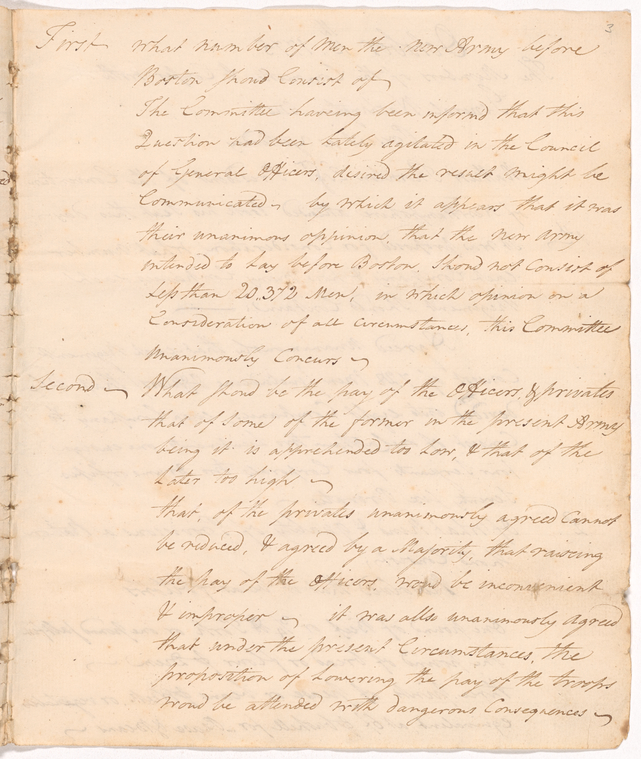 3
First what number of Men the new Army before
Boston shoud Consist of
The Committee haveing been informd that this
Question had been Lately agitated in the Council
of General Officers, desired the result might be
Communicated by which it appears that it was
their unanimous oppinion, that the new army
intended to Lay before Boston, shoud not Consist of
Less than 20.372 Men, in which opinion on a
Consideration of all circumstances, this Committee
Unanimously Concurs
Second What shoud be the pay of the Officers, & privates
that of some of the former in the present Army
being it is apprehended too Low, & that of the
Later too high
that, of the privates unanimously agreed Cannot
be reduced, & agreed by a Majority, that raising
the pay of the officers, woud be inconvenient
& improper it was allso unanimously Agreed
that under the present Circumstances, the
proposition of Lowering the pay of the troops
woud be attended with dangerous Consequences